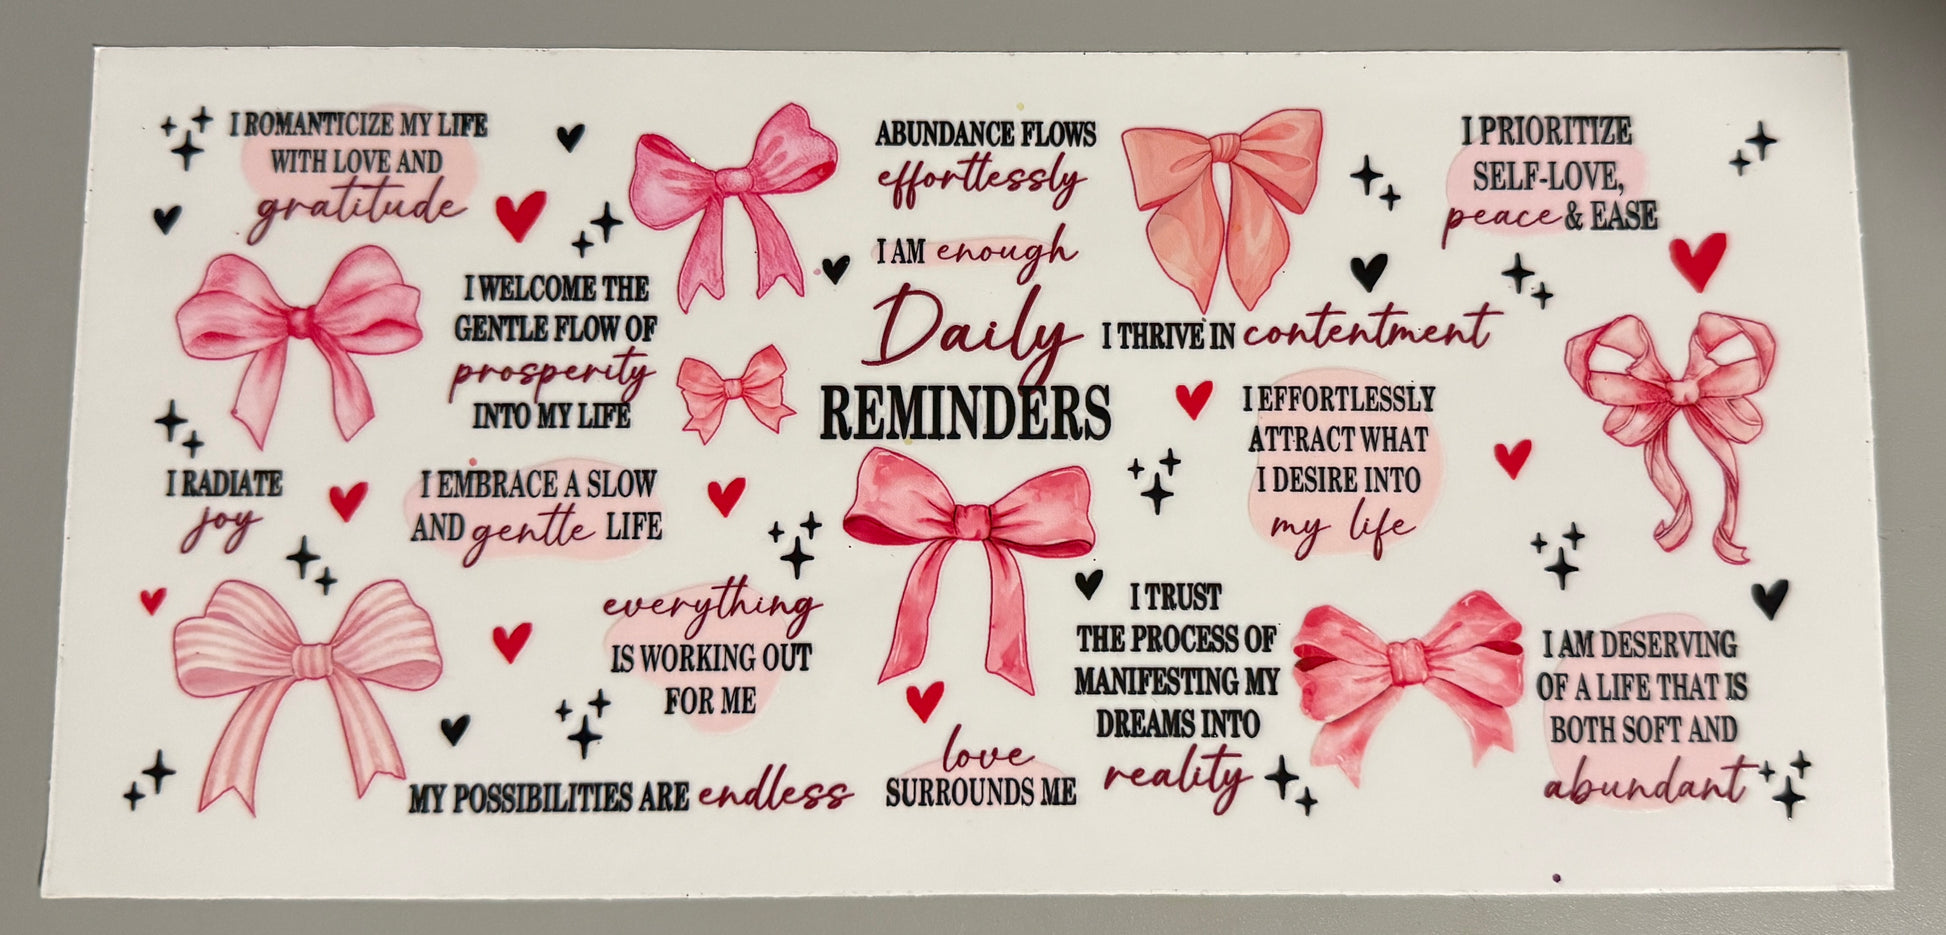 I ROMANTICIZE MY LIFE
WITH LOVE AND
gratitude
I WELCOME THE
GENTLE FLOW OF
prosperity
INTO MY LIFE
I RADIATE
joy
I EMBRACE A SLOW
AND gentle LIFE
everything
IS WORKING OUT
FOR ME
MY POSSIBILITIES ARE endless
ABUNDANCE FLOWS
effortlessly
I AM enough
Daily
REMINDERS
love
SURROUNDS ME
I THRIVE IN contentment
I PRIORITIZE
SELF-LOVE,
peace & EASE
I EFFORTLESSLY
ATTRACT WHAT
I DESIRE INTO
my life
I TRUST
THE PROCESS OF
MANIFESTING MY
DREAMS INTO
reality
I AM DESERVING
OF A LIFE THAT IS
BOTH SOFT AND
abundant